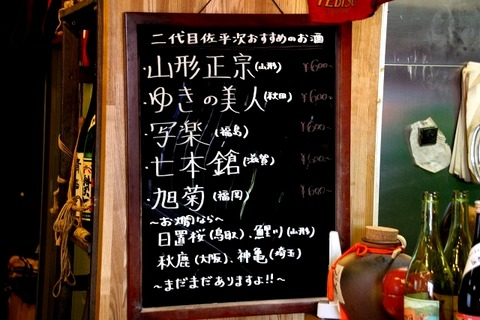 YEBISU
二代目佐平次おすすめのお酒
・山形正宗(山形) ¥600-
・ゆきの美人(秋田) ¥600-
・写楽(福島) ¥600-
・七本鎗(滋賀) ¥500-
・旭菊(福岡) ¥600-
〜お燗なら〜
日置桜(鳥取)、鯉川(山形)
秋鹿(大阪)、神亀(埼玉)
〜まだまだありますよ!!〜